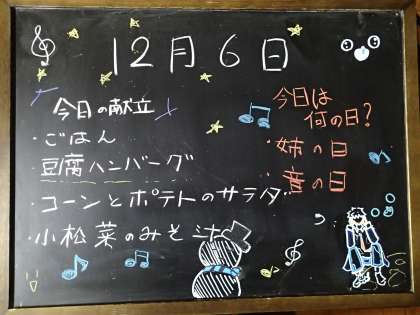 12月6日
今日の献立
・ごはん
豆腐ハンバーグ
・コーンとポテトのサラダ
・小松菜のみそ汁
今日は
何の日?
・姉の日
・音の日